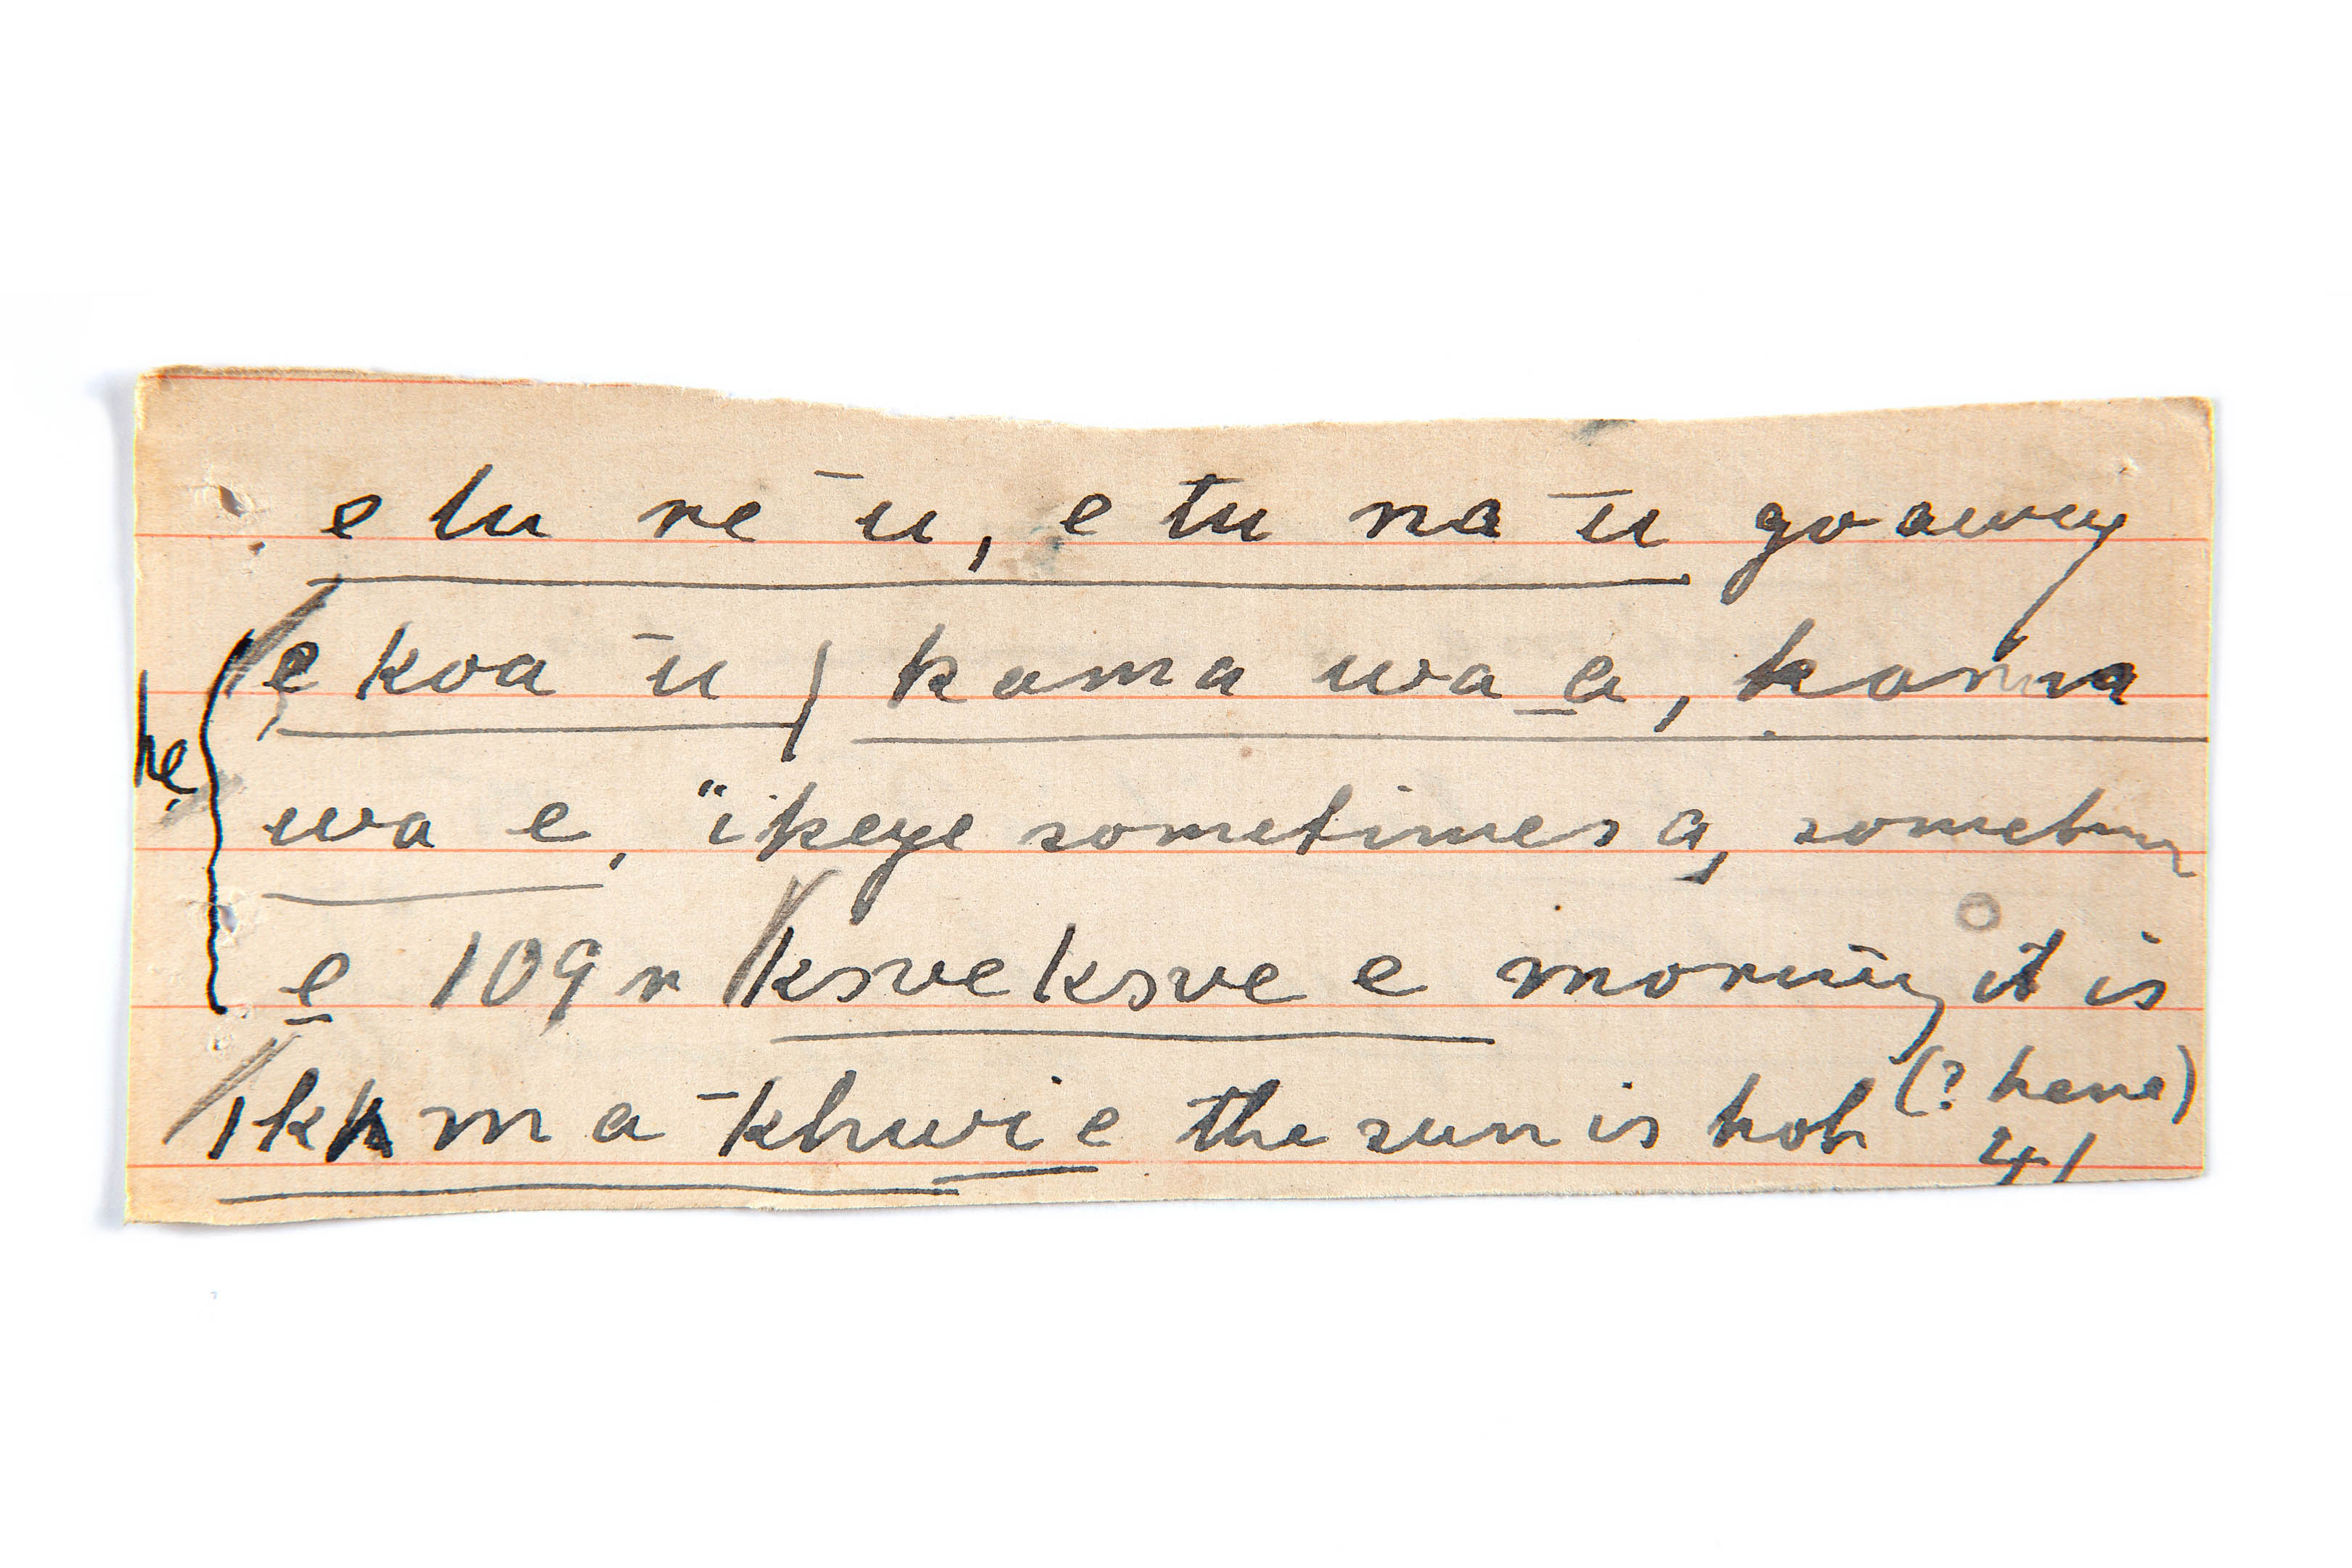 e tu re ū, e tu na ū go away
e koa ū / kama wa a, kama
he
wa e, "ikeye sometimes a, sometim
e 109 r ksveksve e morning it is
|kkma ‾khwi e the sun is hot (? hene)
41